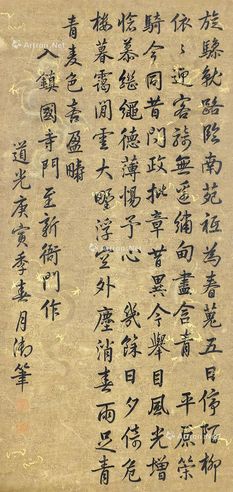 旋驂軟路臨南苑祗為春蒐五日停陌柳
依〻迎客旆無邊繡甸盡含青　平原策
騎今同昔問政批章昔異今舉目風光增
愴慕繼繩德薄惕予心　幾餘日夕倚危
樓暮靄閒雲大野浮空外塵消春雨足青
青麦色喜盈疇
入鎮國寺門至新衙門作
道光庚寅季春月御筆
Artron.Net